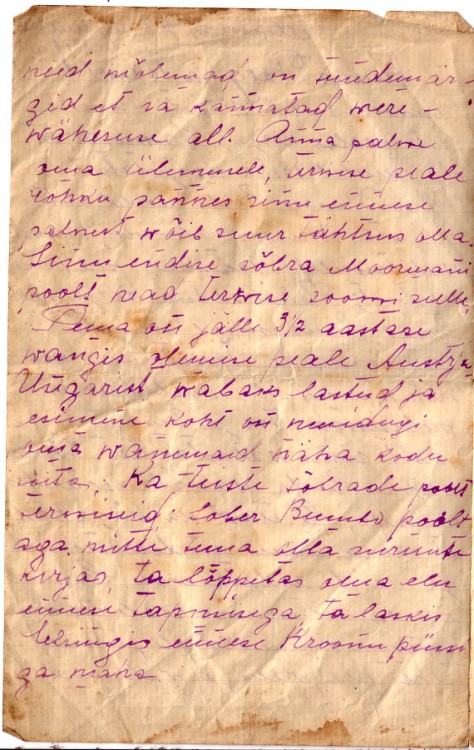 need mõlemad on tundemär-
gid et sa kannatad were-
wähesuse all. Anna palwe
oma ülemusele, terwise peale
rohku pannes sinu ennese
palwest wõib suur tähtsus olla.
Sinu endise sõbra Moosmani
poolt head terwise soowi sulle.
Tema on jälle 3½ aastase
wangis olemise peale Austria
Ungarist wabaks lastud ja
esimene koht on muidugi
oma wanemaid näha kodu
sõita. Ka teiste sõbrade poolt
terwiseid. Sober poolt
aga mitte tema olla surnute
kirjas, ta lõppetas oma elu
ennese tapmisega, ta laskis
ennese Kroonu püssi
ga maha.